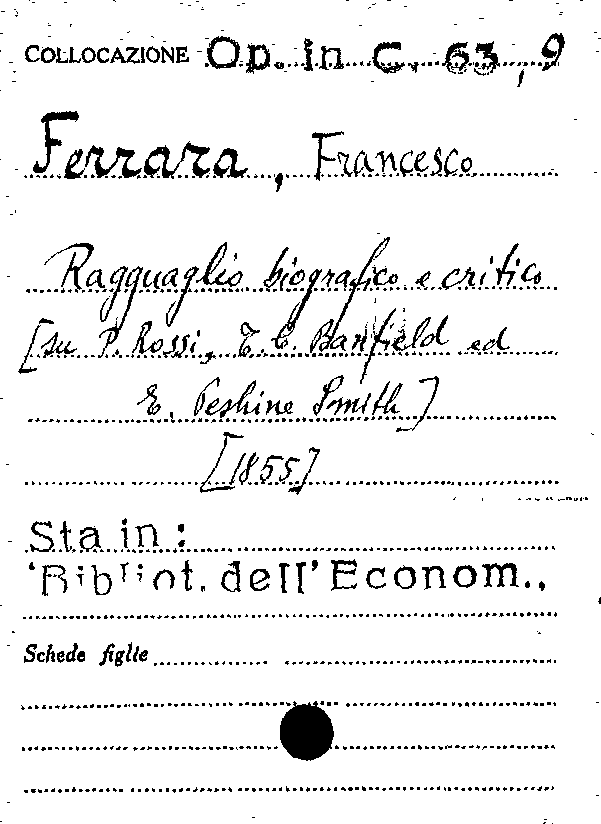 COLLOCAZIONE Op. in C. 63, 9
Ferrara, Francesco
Ragguaglio biografico e critico
[su P. Rossi, T. C. Banfield ed
E. Peshine Smith]
[1855]
Sta in:
'Bibliot. dell' Econom.,
Schede figlie